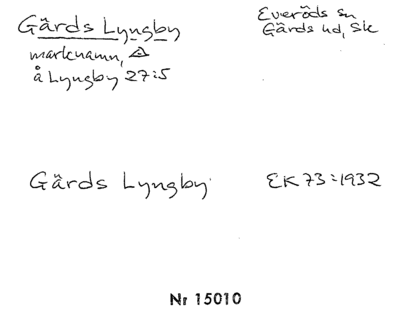 Gårds Lyngby
Everöds sn
Gårds hd, Sk
marknamn,
å Lyngby 27:5
Gårds Lyngby
EK 73:1932
Nr 15010